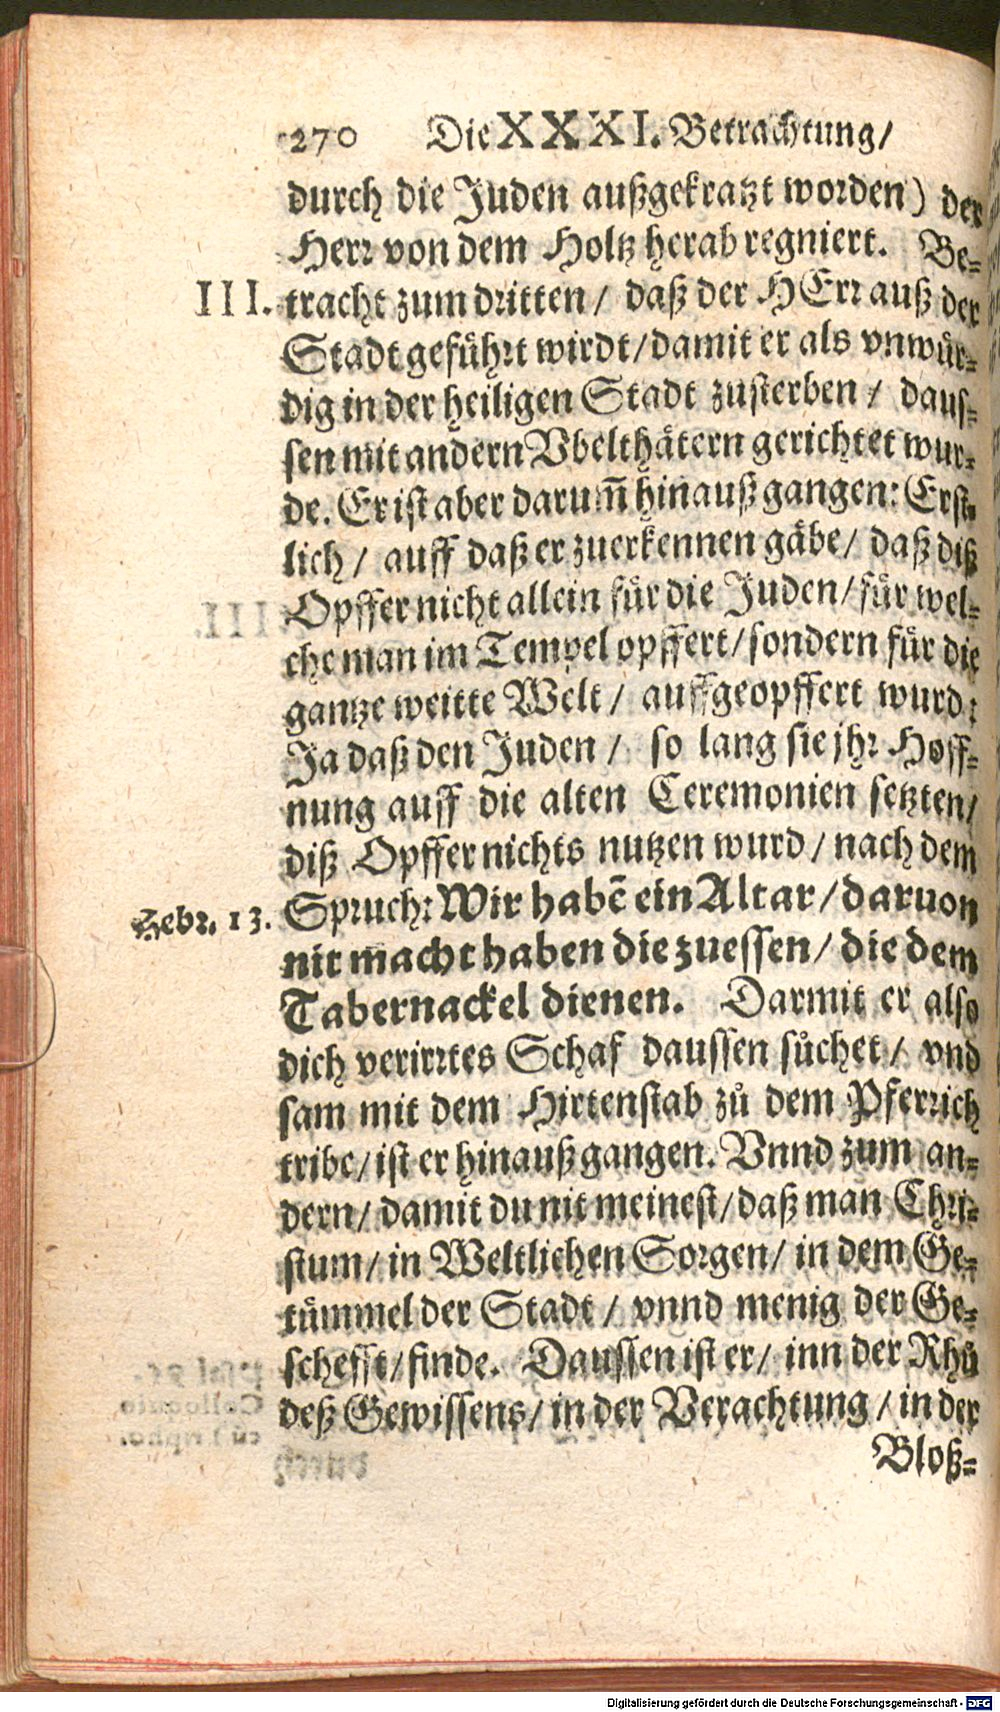 270 Die XXXI. Betrachtung/
durch die Juden außgekratzt worden) der
Herr von dem Holtz herab regniert. Be-
III. tracht zum dritten/ daß der HErr auß der
Stadt geführt wirdt/damit er als vnwür-
dig in der heiligen Stadt zusterben/ daus-
sen mit andern Vbelthätern gerichtet wur-
de. Er ist aber darum̃ hinauß gangen: Erst-
lich/ auff daß er zuerkennen gäbe/ daß diß
Opffer nicht allein für die Juden/für wel-
che man im Tempel opffert/sondern für die
gantze weitte Welt/ auffgeopffert wurd:
Ja daß den Juden/ so lang sie jhr Hoff-
nung auff die alten Ceremonien setzten/
diß Opffer nichts nutzen wurd/nach dem
Hebr. 13. Spruch: Wir habẽ ein Altar/daruon
nit macht haben die zuessen/die dem
Tabernackel dienen. Darmit er also
dich verirrtes Schaf daussen sůchet/ vnd
sam mit dem Hirtenstab zů dem Pferrich
tribe/ist er hinauß gangen. Vnnd zum an-
dern/damit du nit meinest/daß man Chri-
stum/in Weltlichen Sorgen/ in dem Ge-
tümmel der Stadt/ vnnd menig der Ge-
schefft/finde. Daussen ist er/ inn der Rhů
deß Gewissens/in der Verachtung/in der
Bloß-
Digitalisierung gefördert durch die Deutsche Forschungsgemeinschaft - DFG